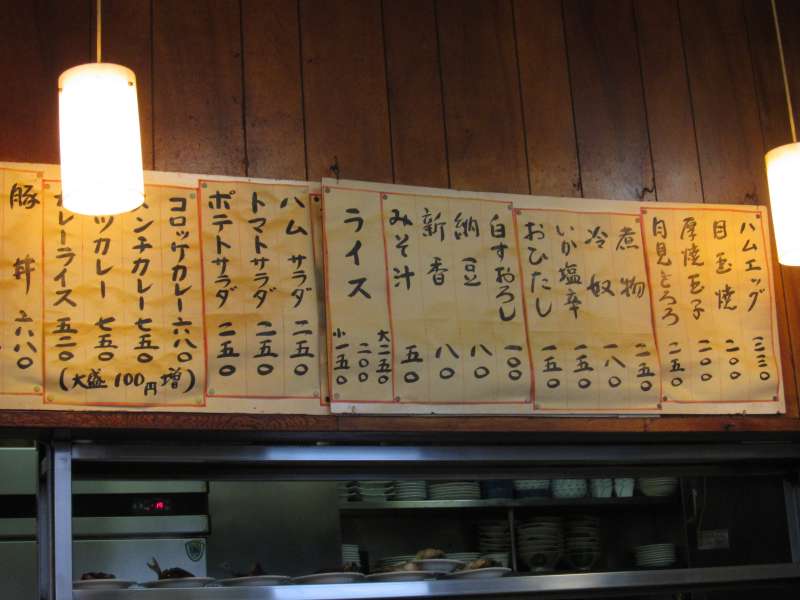 ハムエッグ 三三〇
目玉焼 二〇〇
厚焼玉子 二〇〇
月見とろろ 二五〇
煮物 二五〇
冷奴 一八〇
いか塩辛 一五〇
おひたし 一五〇
白すおろし 一〇〇
納豆 八〇
新香 八〇
みそ汁 五〇
ライス 大二五〇 二〇〇 小一五〇
ハムサラダ 二五〇
トマトサラダ 二五〇
ポテトサラダ 二五〇
コロッケカレー 六八〇
ンチカレー 七五〇
ツカレー 七五〇
カレーライス 五二〇
(大盛100円増)
豚丼 六八〇